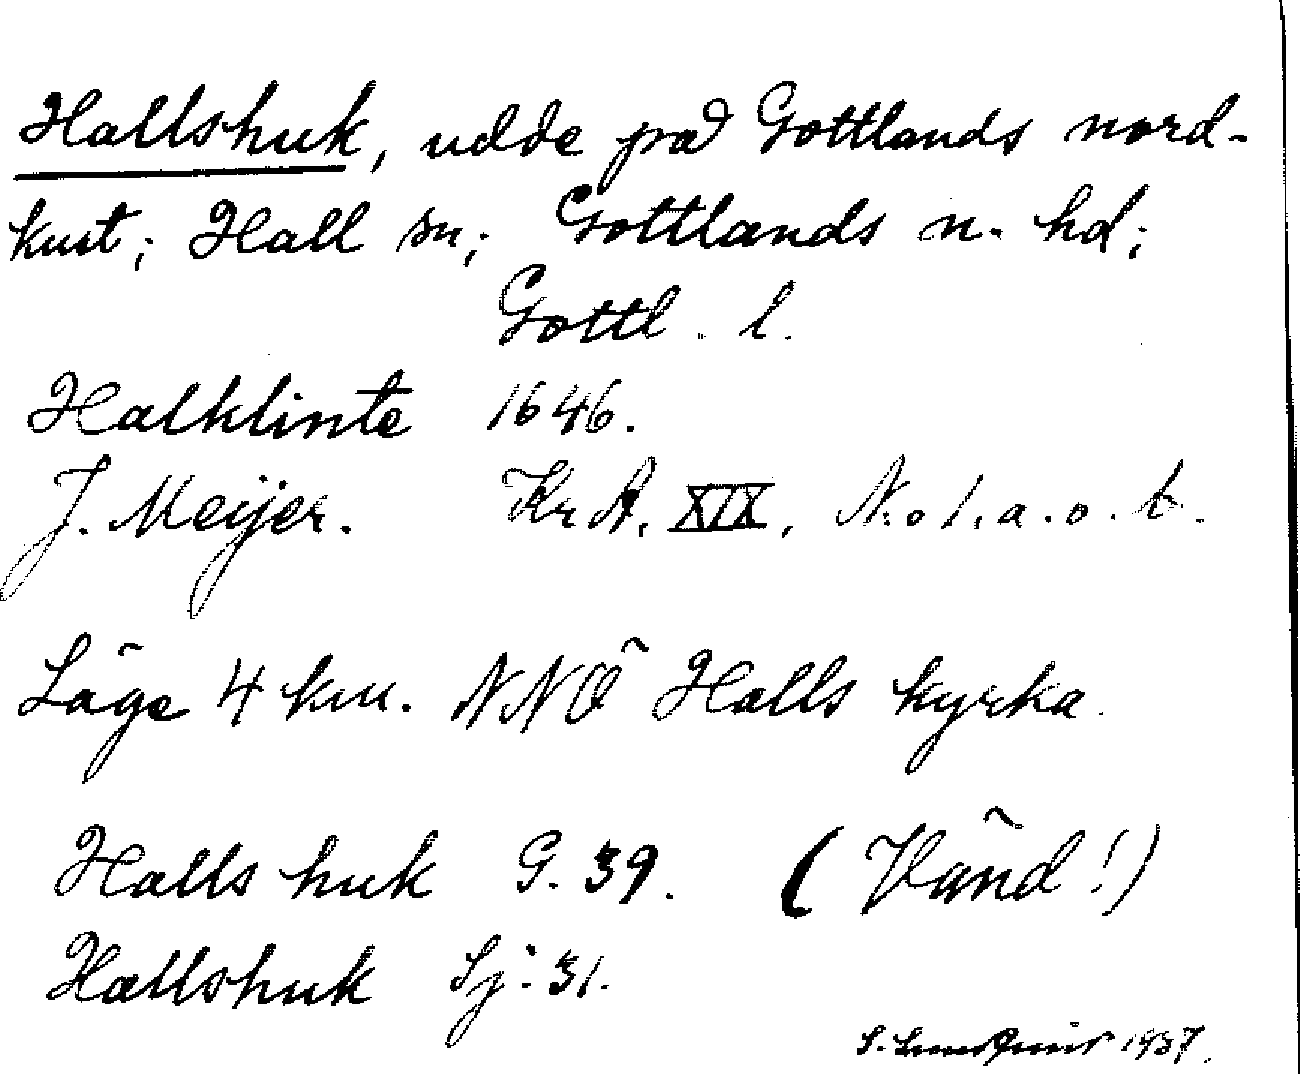 Hallshuk, udde på Gottlands nord-
kust; Hall sn; Gottlands n. hd;
Gottl. l.
Halklinte 1646.
J. Meijer. KrA, XIX, N:o 1. a. o. b.
Läge 4 km. NNÖ Halls kyrka.
Halls huk G. 39. (Vänd!)
Hallshuk Sj. 31.
S. 1937.